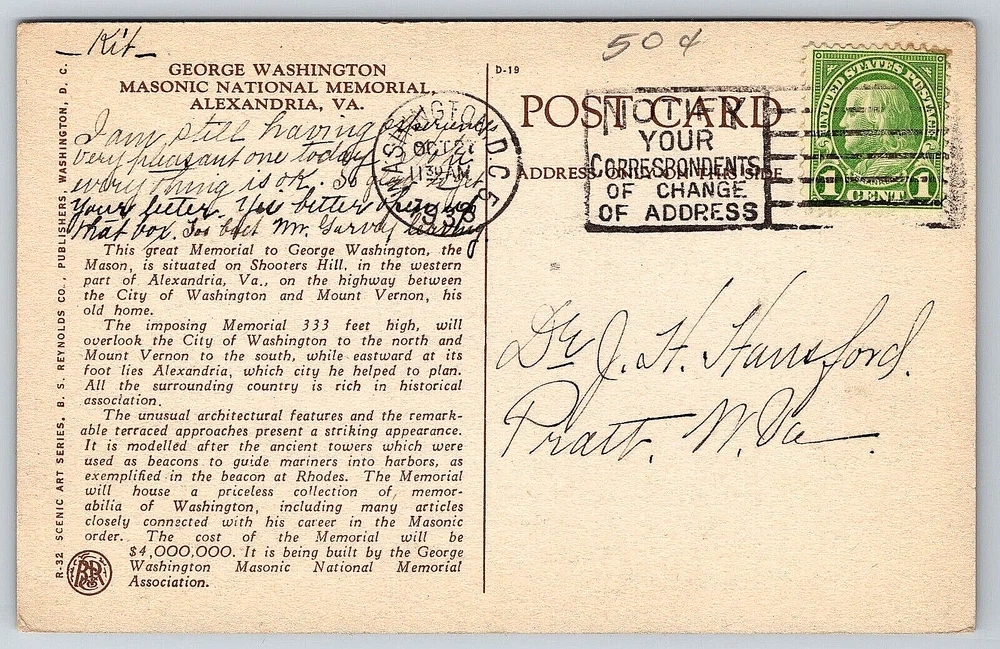 Kit
50¢
GEORGE WASHINGTON
MASONIC NATIONAL MEMORIAL,
ALEXANDRIA, VA.
I am still having
very pleasant one today
everything is ok. So
your better. You better open up
that box. Too bad Mr. leaving
This great Memorial to George Washington, the
Mason, is situated on Shooters Hill, in the western
part of Alexandria, Va., on the highway between
the City of Washington and Mount Vernon, his
old home.
The imposing Memorial 333 feet high, will
overlook the City of Washington to the north and
Mount Vernon to the south, while eastward at its
foot lies Alexandria, which city he helped to plan.
All the surrounding country is rich in historical
association.
The unusual architectural features and the remark-
able terraced approaches present a striking appearance.
It is modelled after the ancient towers which were
used as beacons to guide mariners into harbors, as
exemplified in the beacon at Rhodes. The Memorial
will house a priceless collection of memor-
abilia of Washington, including many articles
closely connected with his career in the Masonic
order. The cost of the Memorial will be
$4,000,000. It is being built by the George
Washington Masonic National Memorial
Association.
R-32 SCENIC ART SERIES, B. S. REYNOLDS CO., PUBLISHERS WASHINGTON, D. C.
BSR
D-19
POST CARD
ADDRESS ONLY ON THIS SIDE
WASHINGTON, D.C.
OCT 27
11 30 AM
1938
NOTIFY
YOUR
CORRESPONDENTS
OF CHANGE
OF ADDRESS
UNITED STATES POSTAGE
1 CENT 1
Dr J. H. Hansford.
Pratt, W. Va